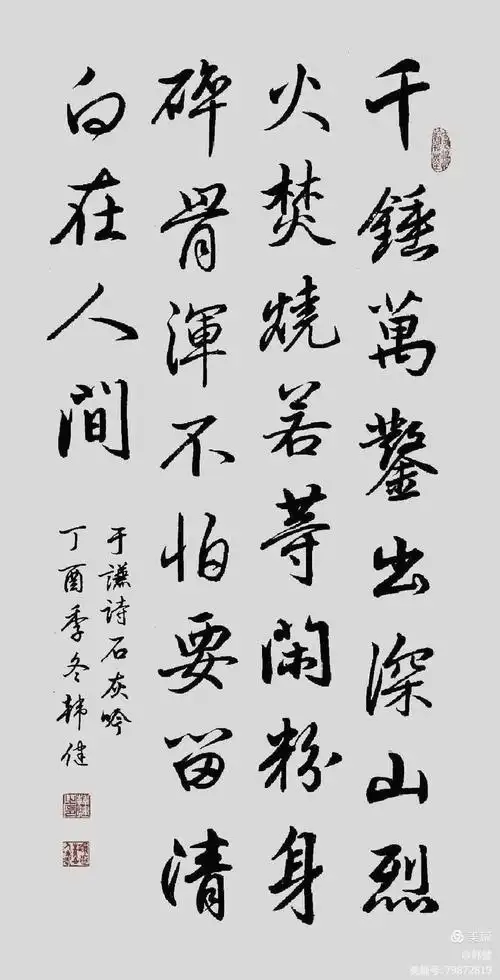 千錘萬鑿出深山烈
火焚燒若等閑粉身
碎骨渾不怕要留清
白在人間
于謙詩石灰吟
丁酉季冬韩健
美篇
@韩健
美篇号:79872815